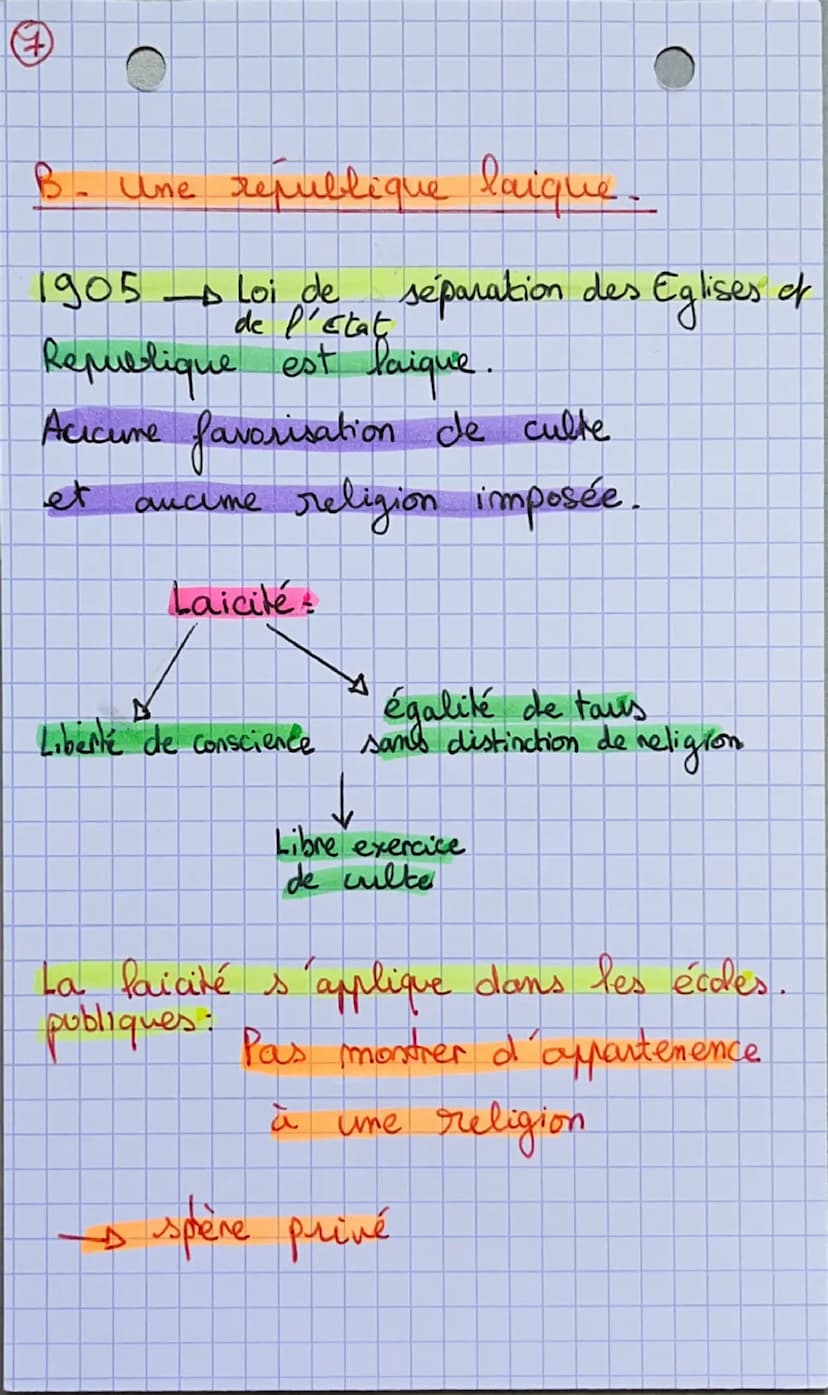 7
B- Une république laique.
1905 → Loi de séparation des Eglises et
de l'Etat
Republique est laique.
Aucune favorisation de culte
et aucune religion imposée.
Laicité:
égalité de tous
Liberté de conscience sans distinction de religion
Libre exercice
de culte
La laicité s'applique dans les écoles.
publiques:
Pas montrer d'appartenence
à une religion
→ sphère privé